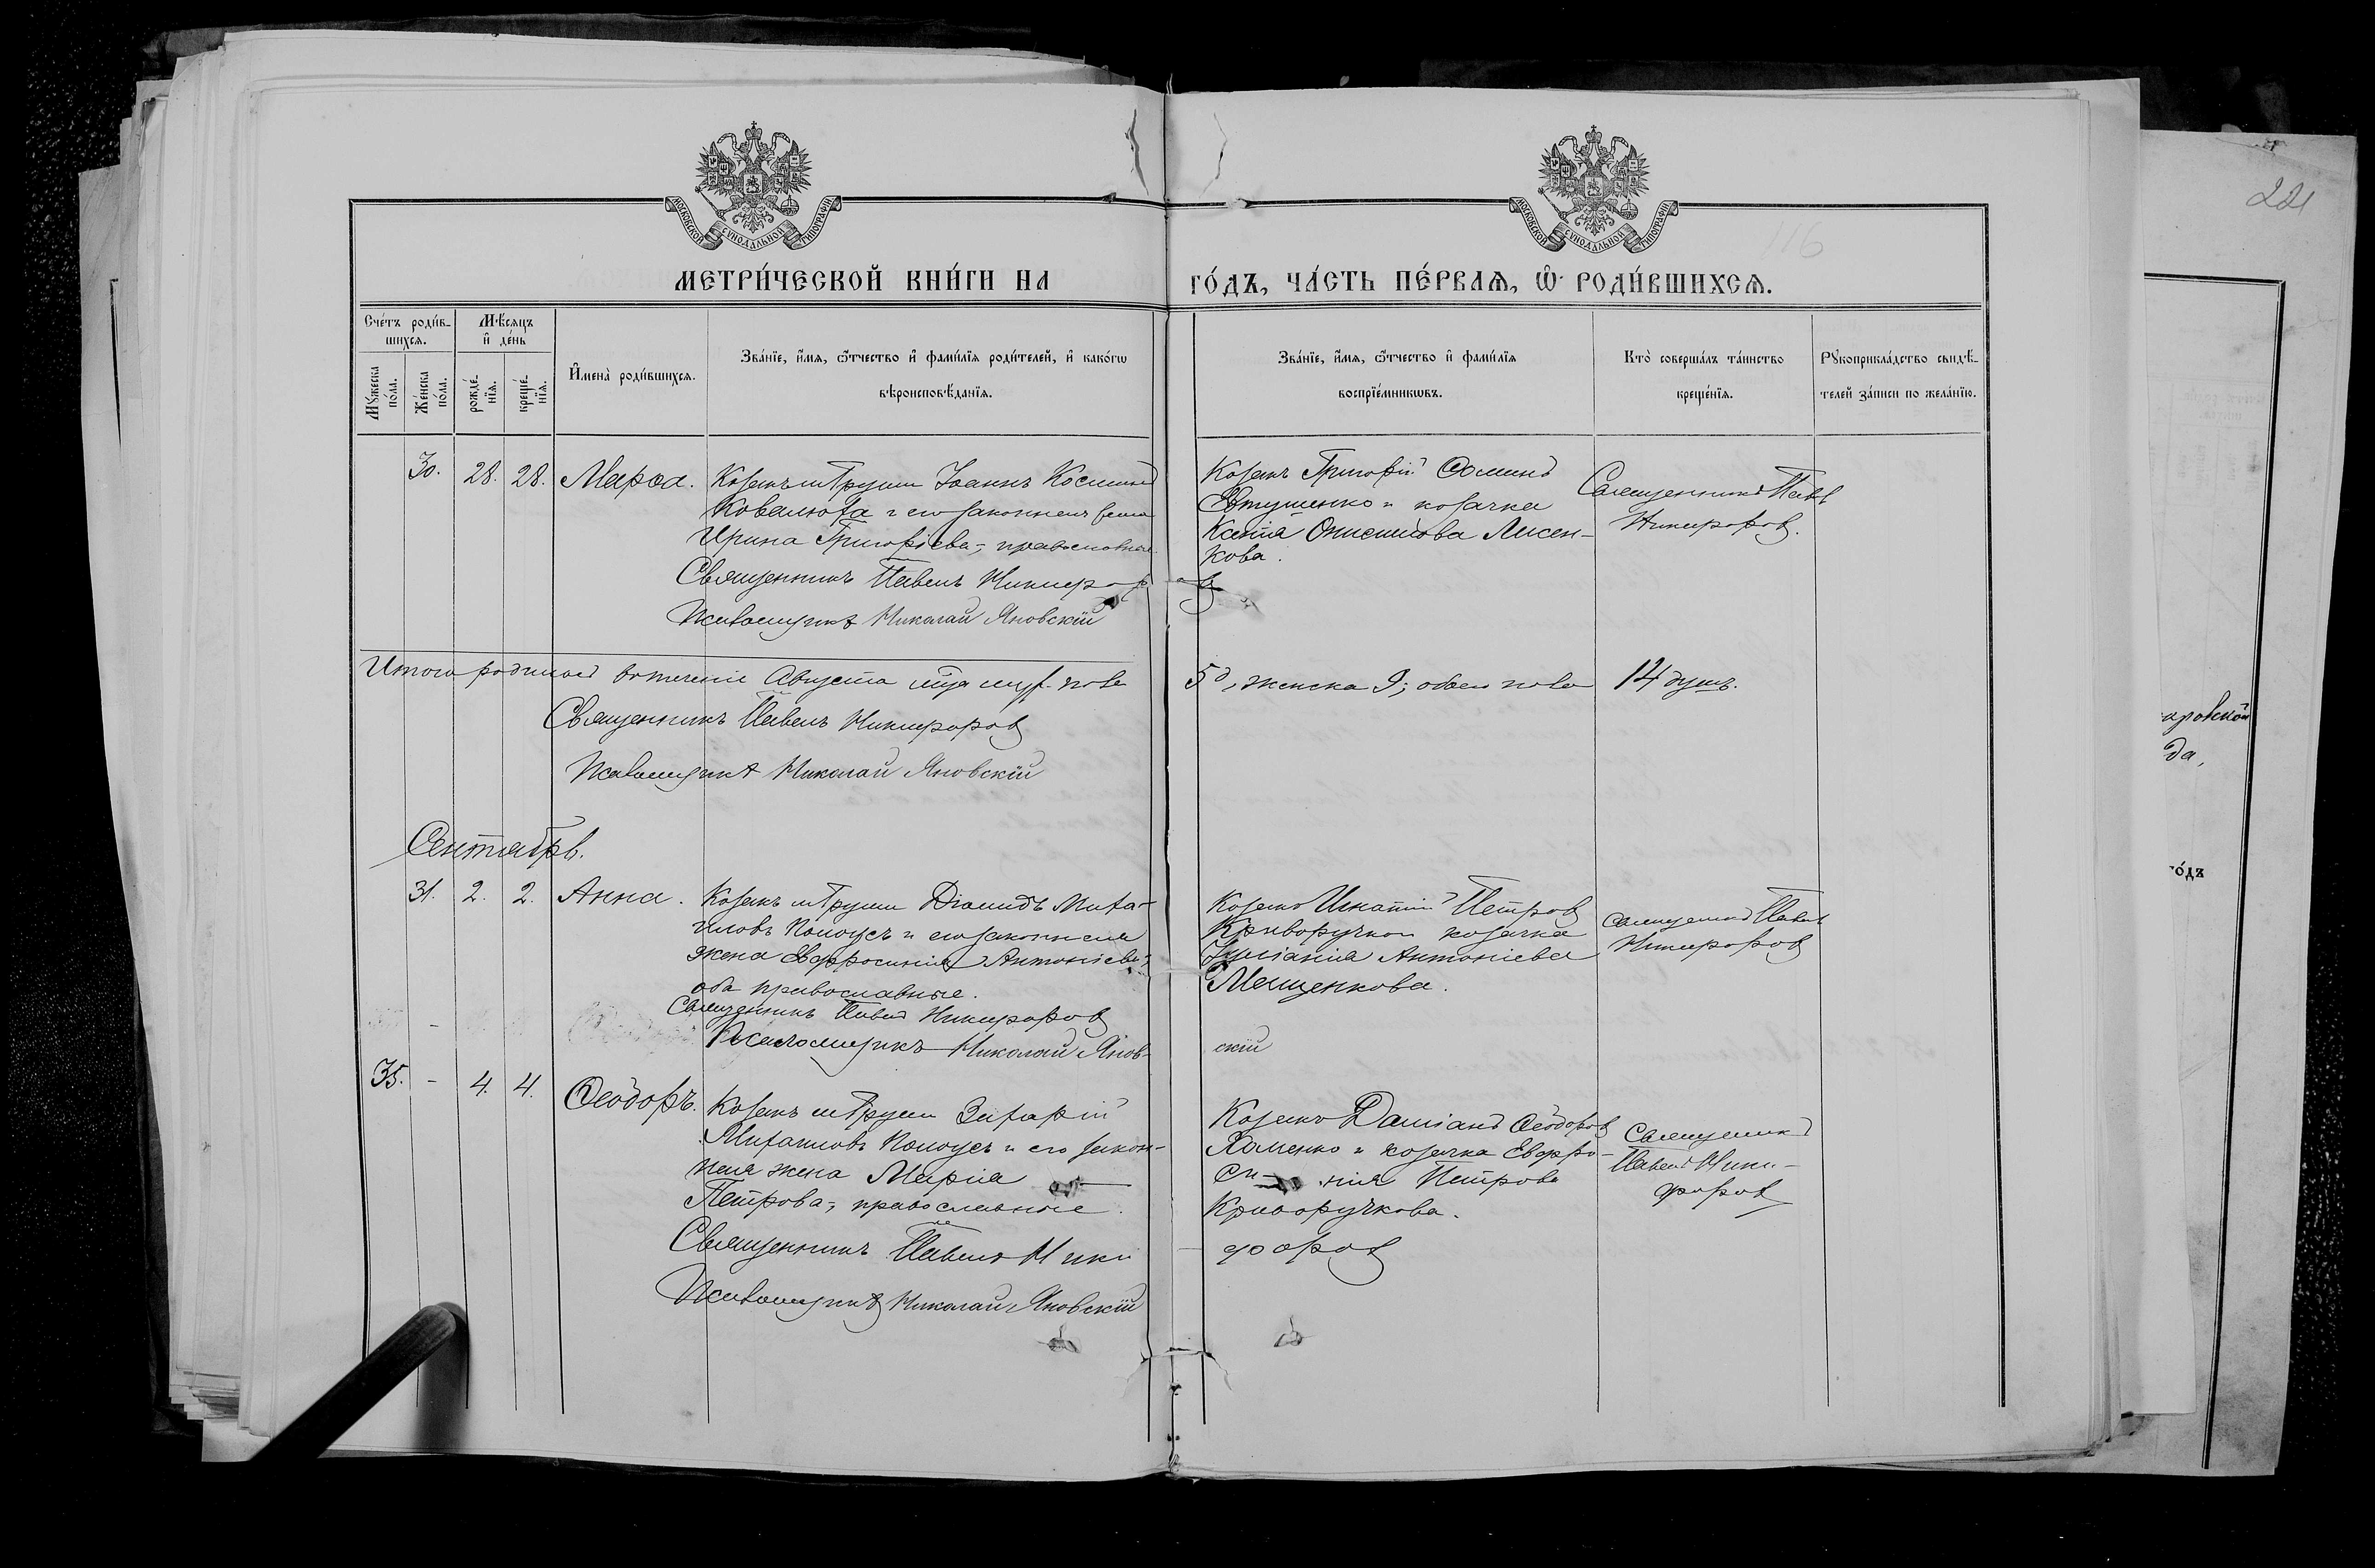 МОСКОВСКОЙ СУНОДАЛЬНОЙ ТИПОГРАФІИ
МОСКОВСКОЙ СУНОДАЛЬНОЙ ТИПОГРАФІИ
221
116
МЕТРИ́ЧЕСКОЙ КНИ́ГИ НА
ГО́ДЪ, ЧА́СТЬ ПЕ́РВАѦ, Ѡ РОДИ́ВШИХСѦ.
Сче́тъ роди́в-
шихсѧ.
Мꙋ́жеска
по́ла.
Же́нска
по́ла.
Мѣ́сѧцъ
и҆ де́нь
рожде́-
нїѧ.
креще́-
нїѧ.
И҆мена̀ роди́вшихсѧ.
Зва́нїе, и҆́мѧ, ѻ҆́тчество и҆ фами́лїѧ роди́телей, и҆ како́гѡ
вѣроисповѣ́данїѧ.
Зва́нїе, и҆́мѧ, ѻ҆́тчество и҆ фами́лїѧ
воспрїе́мникѡвъ.
Кто̀ соверша́лъ та́инство
креще́нїѧ.
Рꙋкоприкла́дство свидѣ́-
телей за́писи по жела́нїю.
30. 28. 28. Марѳа. Козакъ Іоаннъ Косминъ
и его законная жена
Ирина Григоріева, православные
Священникъ Павелъ Никифоровъ
Псаломщикъ Николай Яновскій
Козакъ Григорій Ѳоминъ
Евтушенко и козачка
Ксенія Онисимова Лисен-
кова.
Священникъ Павелъ
Никифоровъ.
Итого родилось въ теченіе Августа м-ца муж. пола
5, женска 9; обоего пола 14 душъ.
Священникъ Павелъ Никифоровъ
Псаломщикъ Николай Яновскій
Сентябрь.
31. 2. 2. Анна. Козакъ Діомидъ Миха-
иловъ и его законная
жена Евфросинія Антоніева,
оба православные.
Священникъ Павелъ Никифоровъ
Псаломщикъ Николай Янов-
скій
Козакъ Игнатій Петровъ
Криворучко и козачка
Іуліанія Антоніева
Мащенкова.
Священникъ Павелъ
Никифоровъ
35. - 4. 4. Ѳеодоръ. Козакъ
Михаиловъ и его закон-
ная жена Марія
Петрова, православные.
Священникъ Павелъ Ники
форовъ
Псаломщикъ Николай Яновскій
Козакъ Даміанъ Ѳеодоровъ
Хоменко и козачка Евфро-
си- нія Петрова
Криворучкова.
Священникъ
Павелъ Ники-
форовъ
да,
го́дъ